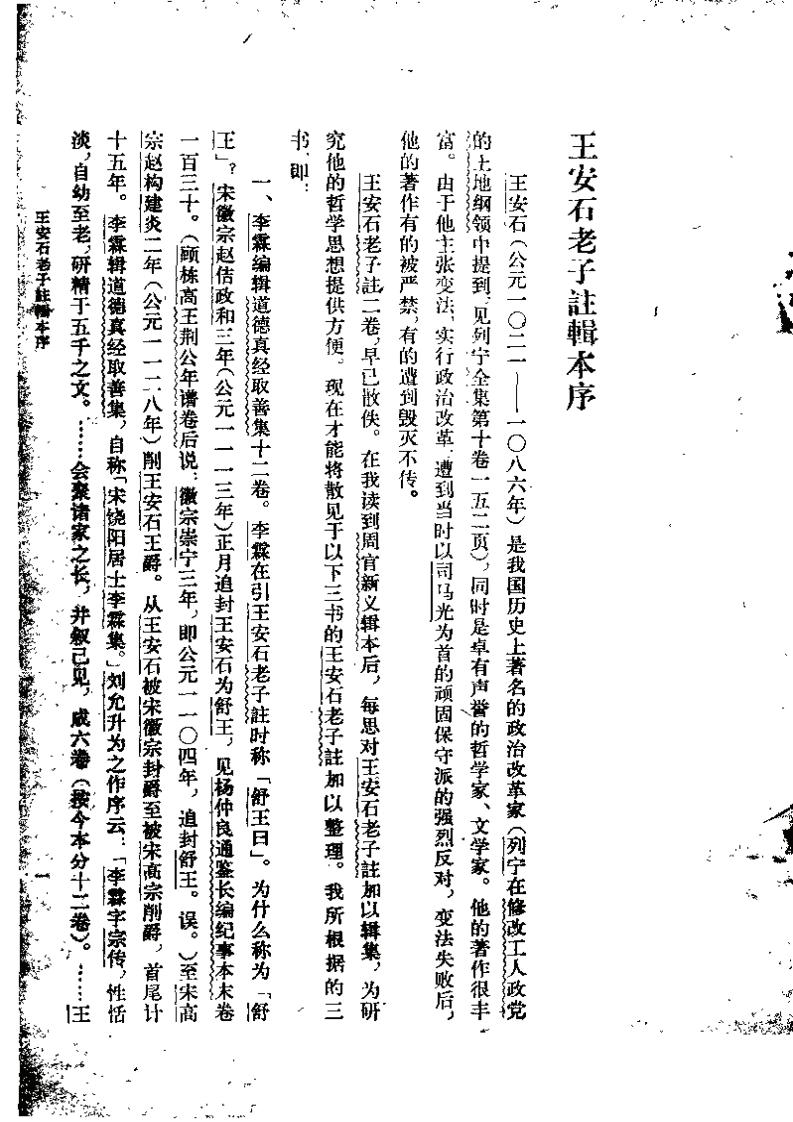 王安石老子註輯本序
王安石（公元一〇二一——一〇八六年）是我国历史上著名的政治改革家（列宁在修改工人政党
的土地纲领中提到，见列宁全集第十卷一五二页），同时是卓有声誉的哲学家、文学家。他的著作很丰
富。由于他主张变法，实行政治改革，遭到当时以司马光为首的顽固保守派的强烈反对，变法失败后，
他的著作有的被严禁，有的遭到毁灭不传。
王安石老子註二卷，早已散佚。在我读到周官新义辑本后，每思对王安石老子註加以辑集，为研
究他的哲学思想提供方便。现在才能将散见于以下三书的王安石老子註加以整理。我所根据的三
书，即：
一、李霖编辑道德真经取善集十二卷。李霖在引王安石老子註时称「舒王曰」。为什么称为「舒
王」？宋徽宗赵佶政和三年（公元一一一三年）正月追封王安石为舒王，见杨仲良通鉴长编纪事本末卷
一百三十。（顾栋高王荆公年谱卷后说：徽宗崇宁三年，即公元一一〇四年，追封舒王。误。）至宋高
宗赵构建炎二年（公元一一二八年）削王安石王爵。从王安石被宋徽宗封爵至被宋高宗削爵，首尾计
十五年。李霖辑道德真经取善集，自称「宋饶阳居士李霖集。」刘允升为之作序云：「李霖字宗传，性恬
淡，自幼至老，研精于五千之文。……会聚诸家之长，并叙己见，成六卷（按今本分十二卷）。……王
王安石老子註輯本序
一